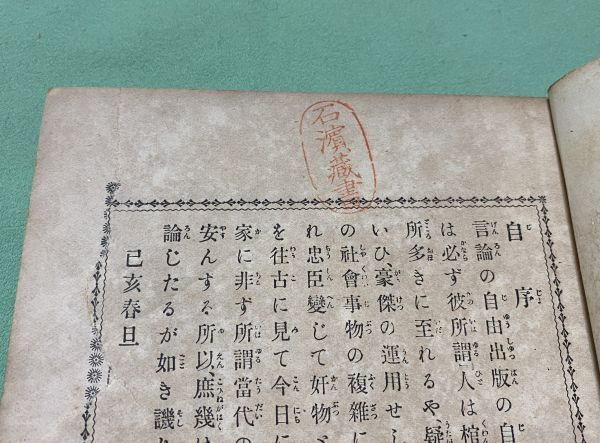 石濱藏書
自序
言論の自由出版の自
は必ず彼所謂「人は棺
所多きに至れるや疑
いひ、豪傑の運用せら
の社會事物の複雜に
れ忠臣變じて奸物と
を往古に見て今日に
家に非ず所謂當代の
安んする所以、庶幾は
論じたるが如き譏り
己亥春旦